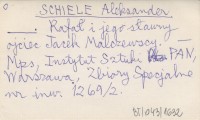 SCHIELE Aleksander
———. Rafał i jego sławny
ojciec Jacek Malczewscy. —
Mps, Instytut Sztuki PAN,
Warszawa, Zbiory Specjalne
nr inw. 1269/2.
BT/043/1692